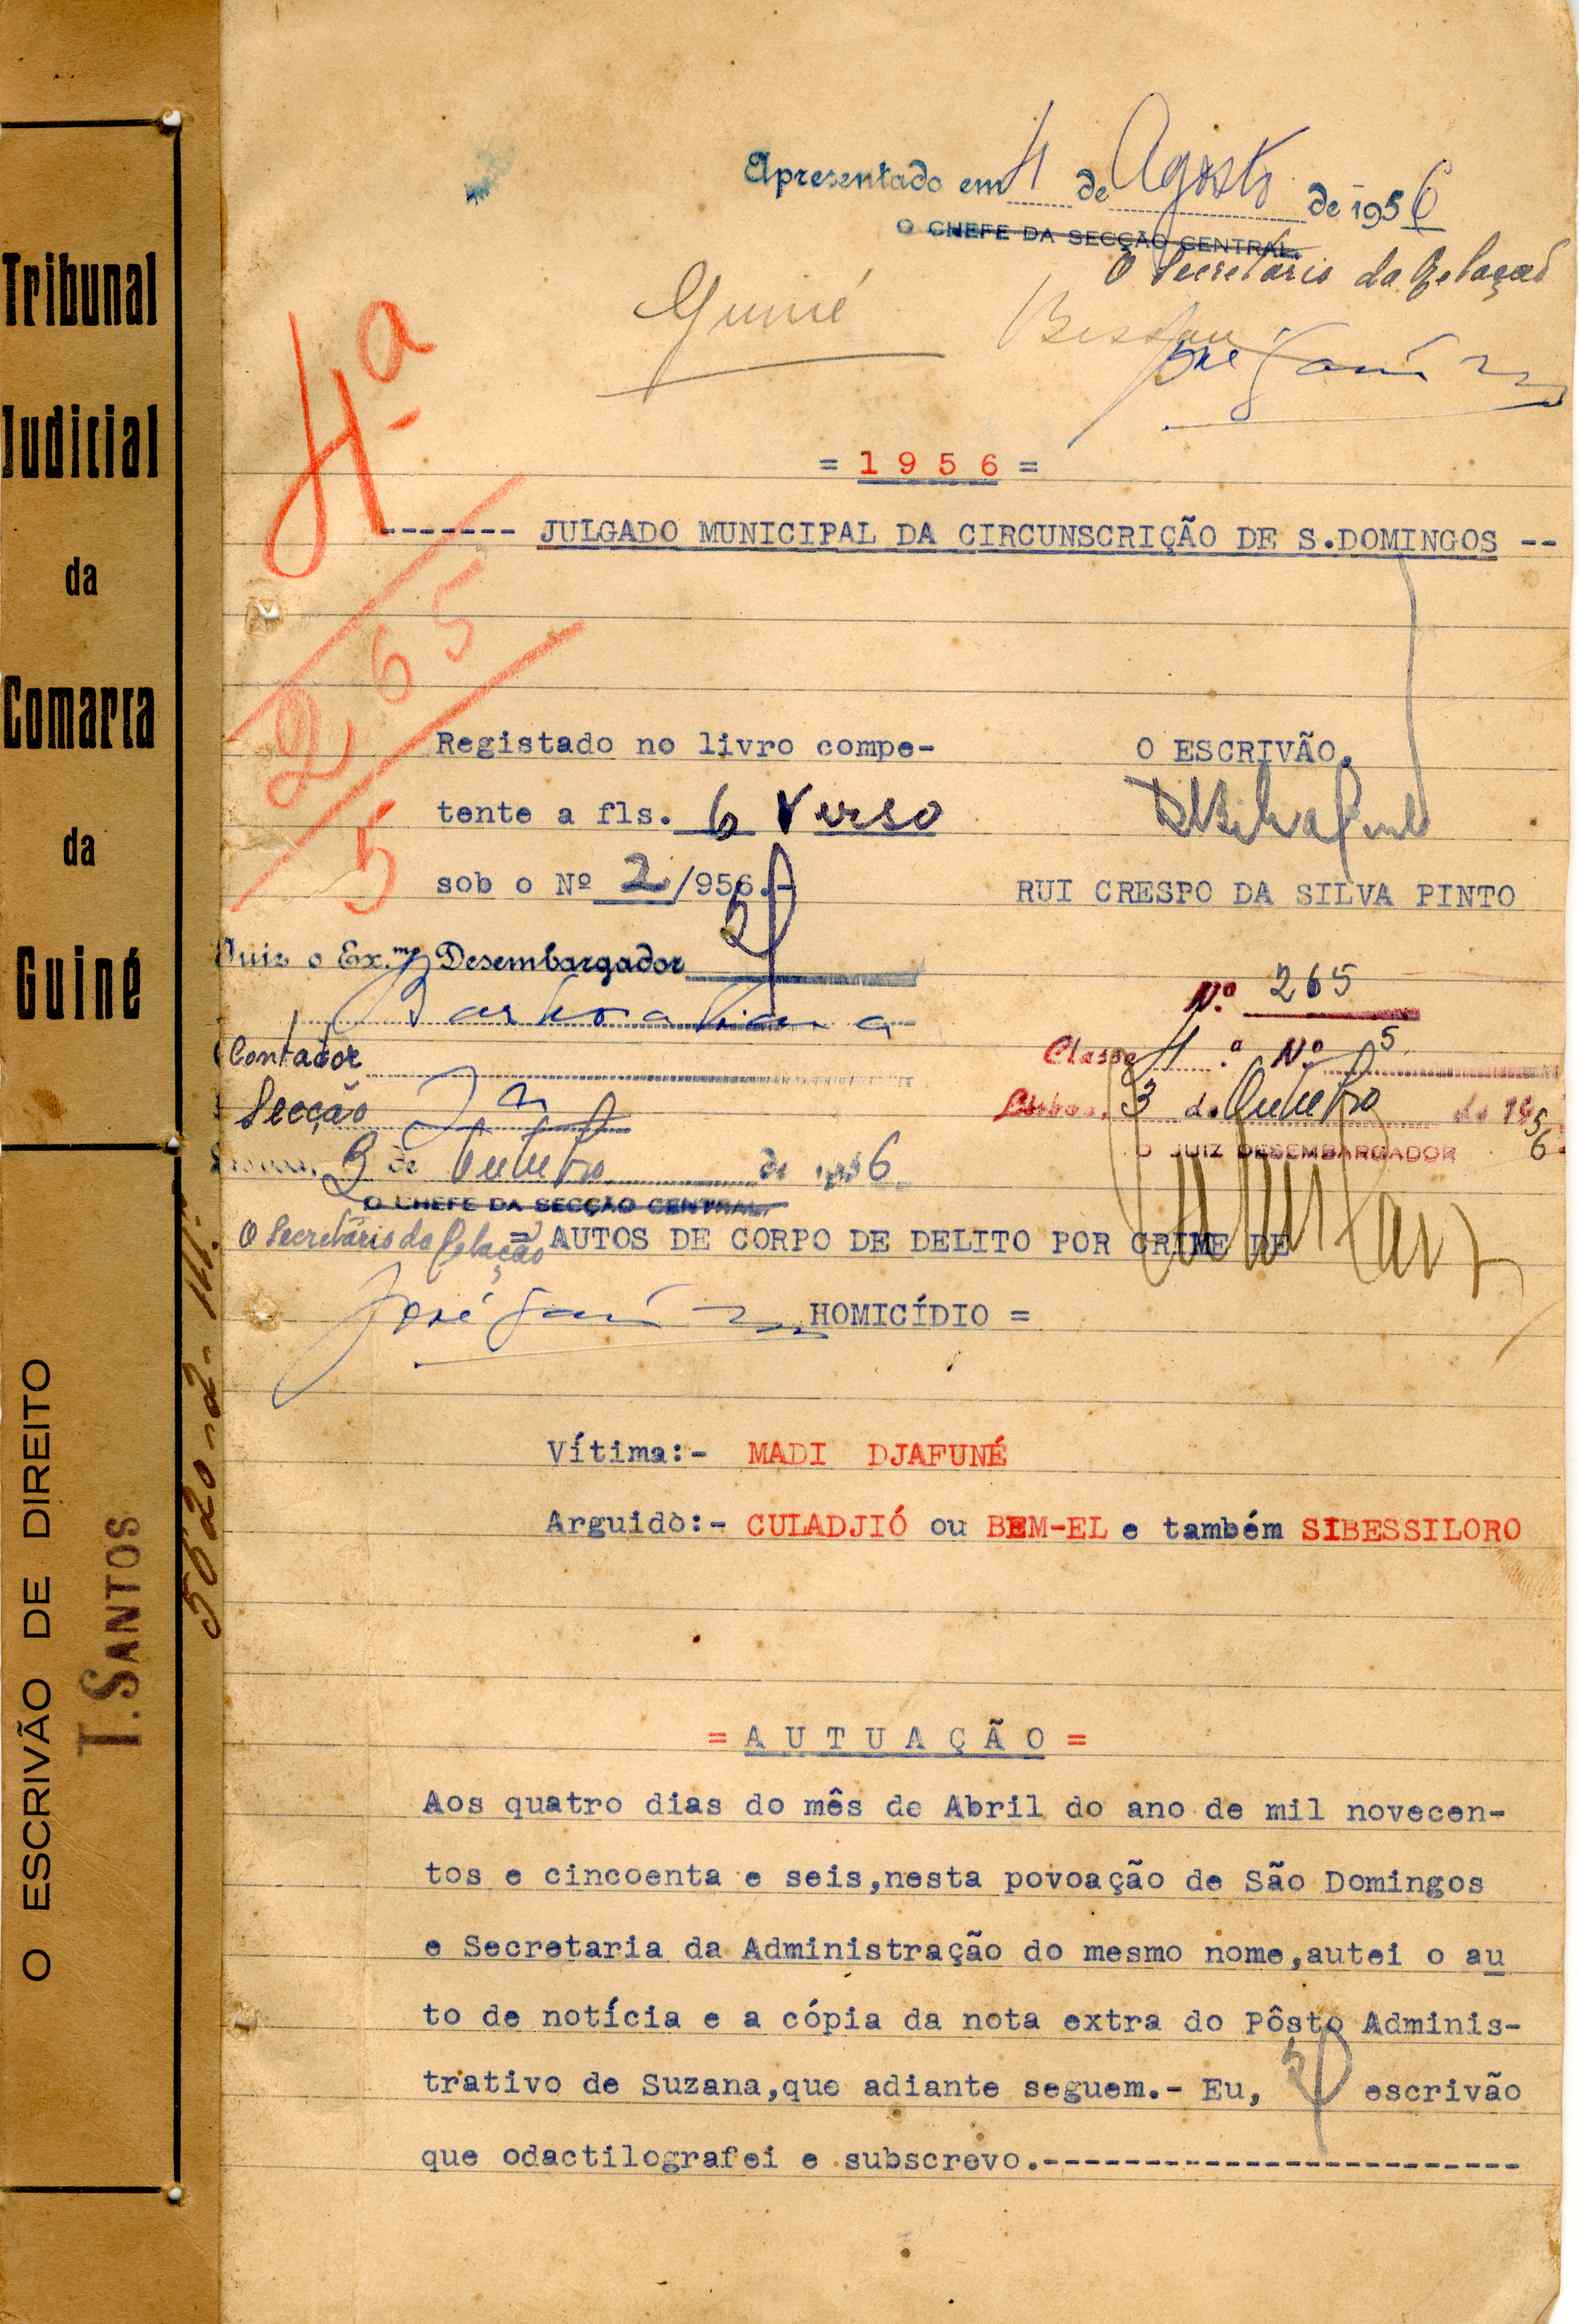 Tribunal
Judicial
da
Comarca
da
Guiné
O ESCRIVÃO DE DIREITO
T. SANTOS
Apresentado em 4 de Agosto de 1956
O CHEFE DA SECÇÃO CENTRAL.
O Secretário da Relação
Guiné
Bissau
4ª
= 1 9 5 6 =
------- JULGADO MUNICIPAL DA CIRCUNSCRIÇÃO DE S.DOMINGOS --
265
5
Registado no livro compe-
tente a fls. 6 Verso
sob o Nº 2/956.-
O ESCRIVÃO,
RUI CRESPO DA SILVA PINTO
Juiz o Ex.mo Desembargador
Contador
Secção
3 de Outubro de 1956
O CHEFE DA SECÇÃO CENTRAL,
O Secretário da Relação
José
N.º 265
Classe 4.ª Nº 5
Lisboa, 3 de Outubro de 1956
O JUIZ DESEMBARGADOR
= AUTOS DE CORPO DE DELITO POR CRIME DE
HOMICÍDIO =
Vítima:- MADI DJAFUNÉ
Arguido:- CULADJIÓ ou BEM-EL e também SIBESSILORO
= A U T U A Ç Ã O =
Aos quatro dias do mês de Abril do ano de mil novecen-
tos e cincoenta e seis,nesta povoação de São Domingos
e Secretaria da Administração do mesmo nome,autei o au
to de notícia e a cópia da nota extra do Pôsto Adminis-
trativo de Suzana,que adiante seguem.- Eu, escrivão
que odactilografei e subscrevo.------------------------